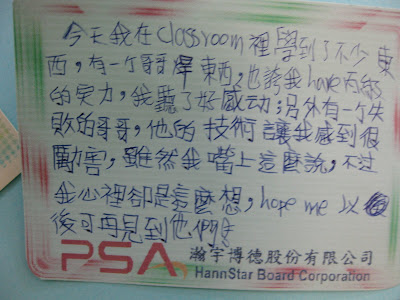 今天我在classroom裡學到了不少東
西,有一个哥哥焊東西,也誇我have
的実力,我聽了好感动;另外有一个失
敗的哥哥,他的技術讓我感到很
勵害,雖然我嘴上這麼說,不过
我心裡卻是這麼想,hope me 以
後可再見到他們
PSA 瀚宇博德股份有限公司
HannStar Board Corporation